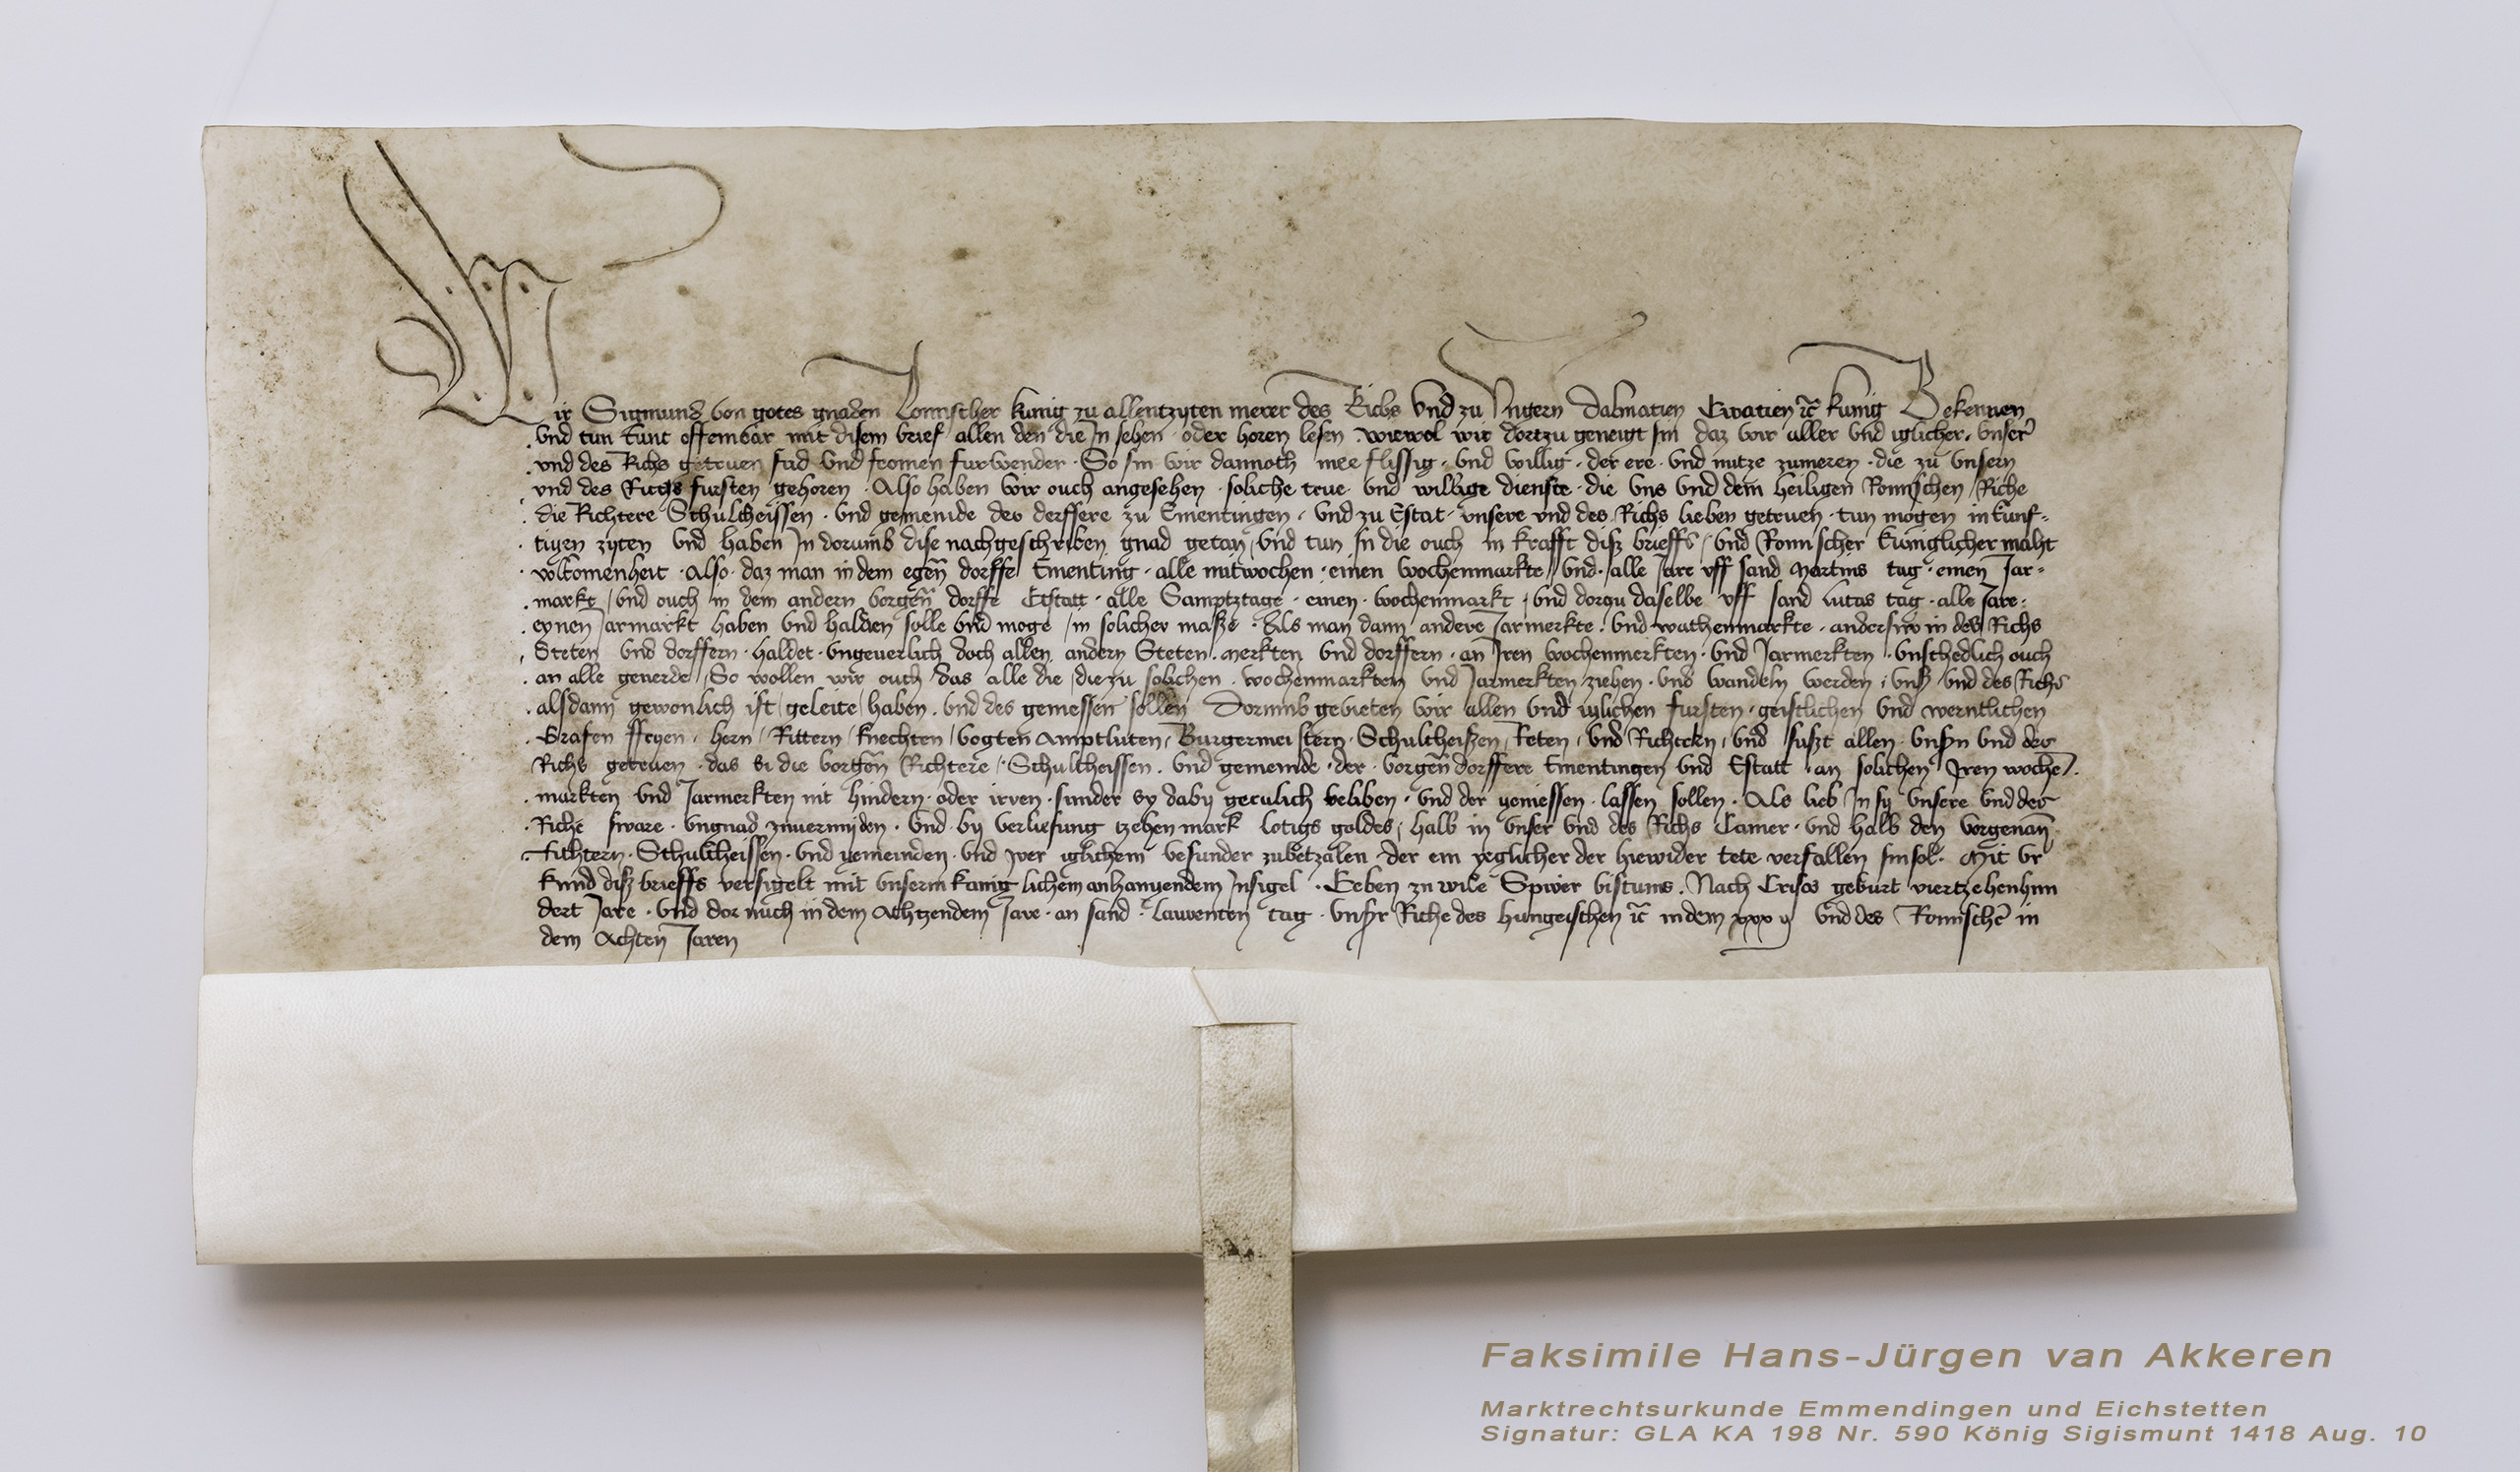 Wir Sigmund von gotes gnaden Romischer kunig zu allentzyten merer des Richs vnd zu Vngern Dalmatien Croatien ꝛc̃ kunig Bekennen
vnd tun kunt offembar mit disem brief allen den die Jn sehen oder horen lesen · wiewol wir dortzu geneigt sin daz wir aller vnd iglicher, vnser
vnd des Richs getruen frid vnd fromen furwender · So sin wir dannoch mee flissig · vnd willig · der ere · vnd nutze zumeren · die zu vnsern
vnd des Richs fursten gehoren · Also haben wir ouch angesehen · soliche true vnd willige dienste · die vns vnd dem heiligen Romischen Riche
die Richtere Schultheissen · vnd gemeinde der derffere zu Ementingen · vnd zu Estat · vnsere vnd des Richs lieben getruen · tun mogen in kunf-
tigen zyten vnd haben Jn dorumb dise nachgeschriben gnad getan / vnd tun Jn die ouch in krafft disz brieffs / vnd Romischer kuniglicher maht
volkomenheit · Also · daz man in dem egen̄ dorffe Ementing · alle mitwochen · einen wochenmarkte / vnd · alle Jare vff sand Martins tag · einen Jar-
markt / vnd ouch in dem andern vorgen̄ dorffe Etstatt · alle Samptztage · einen · wochenmarkt / vnd dorzu daselbs vff sand lucas tag · alle Jare
eynen Jarmarkt haben vnd halden solle vnd moge / in solicher masze · Als man dann andere Jarmerkte · vnd wochenmarkte · anderswo in des Richs
Steten vnd dorffern · haldet · vngeuerlich doch allen andern Steten · merkten vnd dorffern · an Jren wochenmerkten · vnd Jarmerkten · vnschedlich ouch
an alle generde / So wollen wir ouch das alle die / die zu solichen · wochenmarkten vnd Jarmerkten ziehen · vnd wandeln werden · vnsz vnd des Richs
alsdann gewonlich ist / geleite / haben · vnd des geniessen sollen Dorumb gebieten wir allen vnd iglichen fursten · geistlichen vnd werntlichen
Grafen ffryen · hern / Rittern / knechten / vogten Amptluten, Burgermeistern · Schultheiszen, Reten, vnd Richtern, vnd suszt allen · vnsn̄ vnd des
Richs getruen · das si die vorgen̄ Richtere / Schultheissen · vnd gemeinde · der · vorgen̄ dorffere Ementingen vnd Estatt · an solichen Jren wochen
markten vnd Jarmerkten nit hindern · oder irren · sunder sy daby gerulich beliben · vnd der geniessen · lassen sollen · Als lieb Jn sy vnsere vnd des
Richs sware · vngnad zuuermyden · vnd · by verliesung tzehen mark lotigs goldes / halb in vnser vnd des Richs Camer · vnd halb den vorgenan̄
Richtern · Schultheissen · vnd gemeinden · vnd Jrer iglichem besunder zubetzalen der ein yeglicher der hiewider tete verfallen sin sol · Mit vr
kund disz brieffs versigelt mit vnserm kuniglichem anhangendem Jnsigel · Geben zu wile Spirer bistums · Nach Crists geburt viertzehenhun
dert Jare · vnd dor nach in dem Achtzendem Jare · an sand · laurenten tag · vnsr Riche des hungrischen ꝛc̃ in dem xxxij vnd des Romische in
dem Achten Jaren
Faksimile Hans-Jürgen van Akkeren
Marktrechtsurkunde Emmendingen und Eichstetten
Signatur: GLA KA 198 Nr. 590 König Sigismunt 1418 Aug. 10